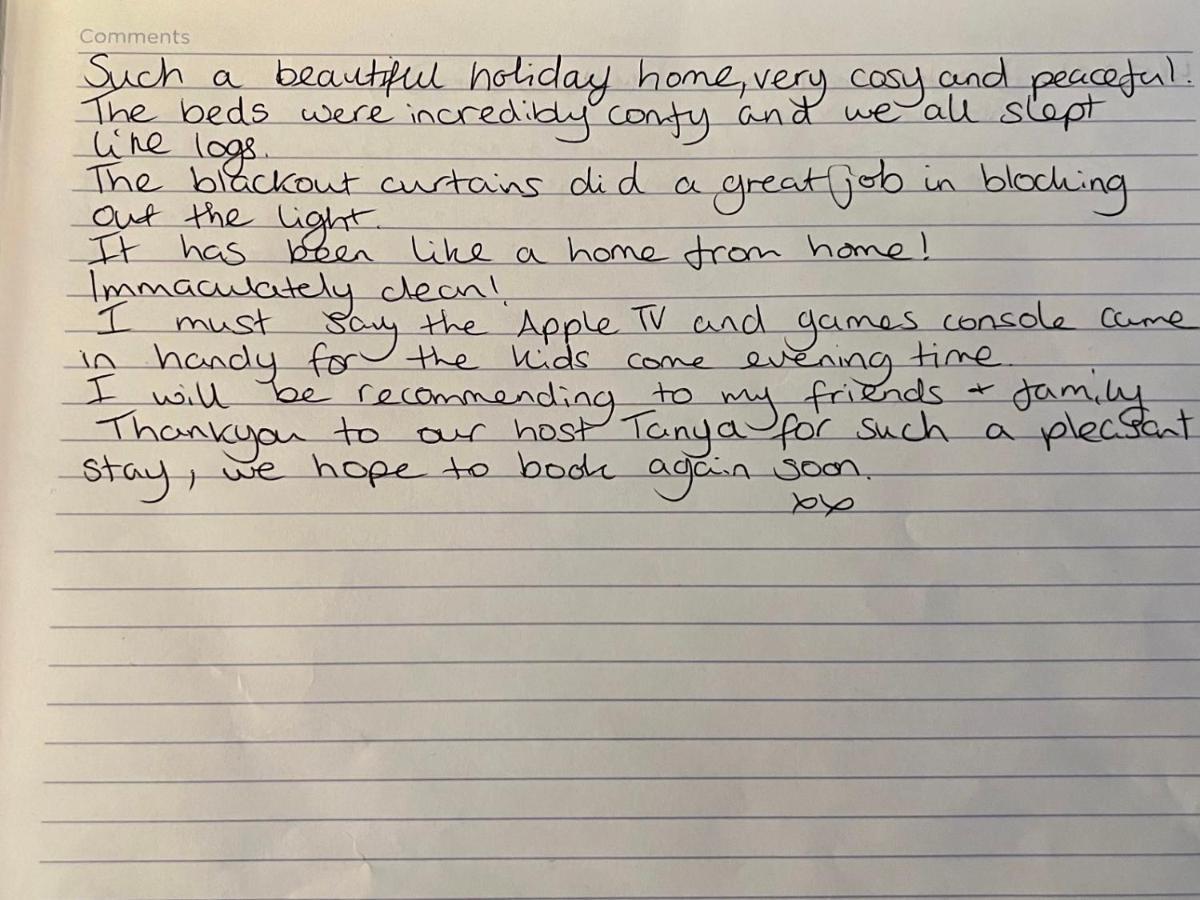 Comments
Such a beautiful holiday home, very cosy and peaceful.
The beds were incredibly comfy and we all slept
like logs.
The blackout curtains did a great job in blocking
out the light.
It has been like a home from home!
Immaculately clean!
I must say the Apple TV and games console came
in handy for the kids come evening time.
I will be recommending to my friends + family
Thankyou to our host Tanya for such a pleasant
stay, we hope to book again soon.
xx